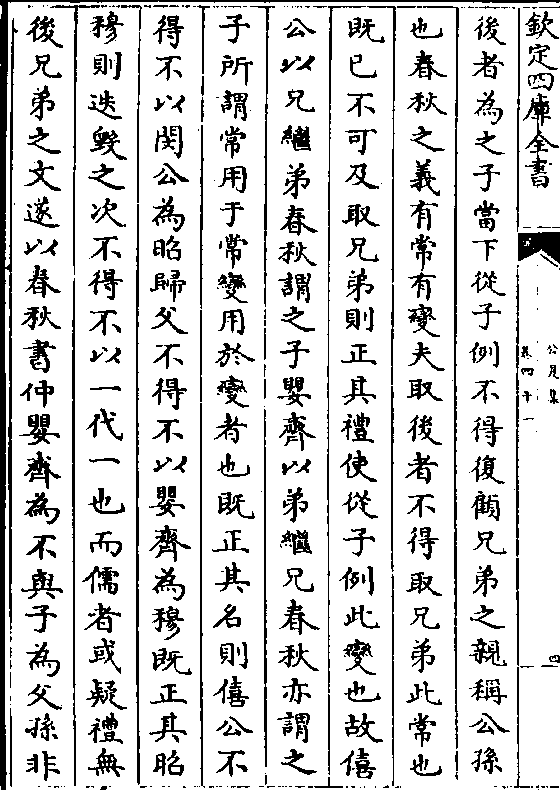 欽定四庫全書
公是集
卷四十一
四
後者為之子當下從子例不得復顧兄弟之親稱公孫
也春秋之義有常有變夫取後者不得取兄弟此常也
既已不可及取兄弟則正其禮使從子例此變也故僖
公以兄繼弟春秋謂之子嬰齊以弟繼兄春秋亦謂之
子所謂常用于常變用於變者也既正其名則僖公不
得不以閔公為昭歸父不得不以嬰齊為穆既正其昭
穆則迭毀之次不得不以一代一也而儒者或疑禮無
後兄弟之文遂以春秋書仲嬰齊為不與子為父孫非